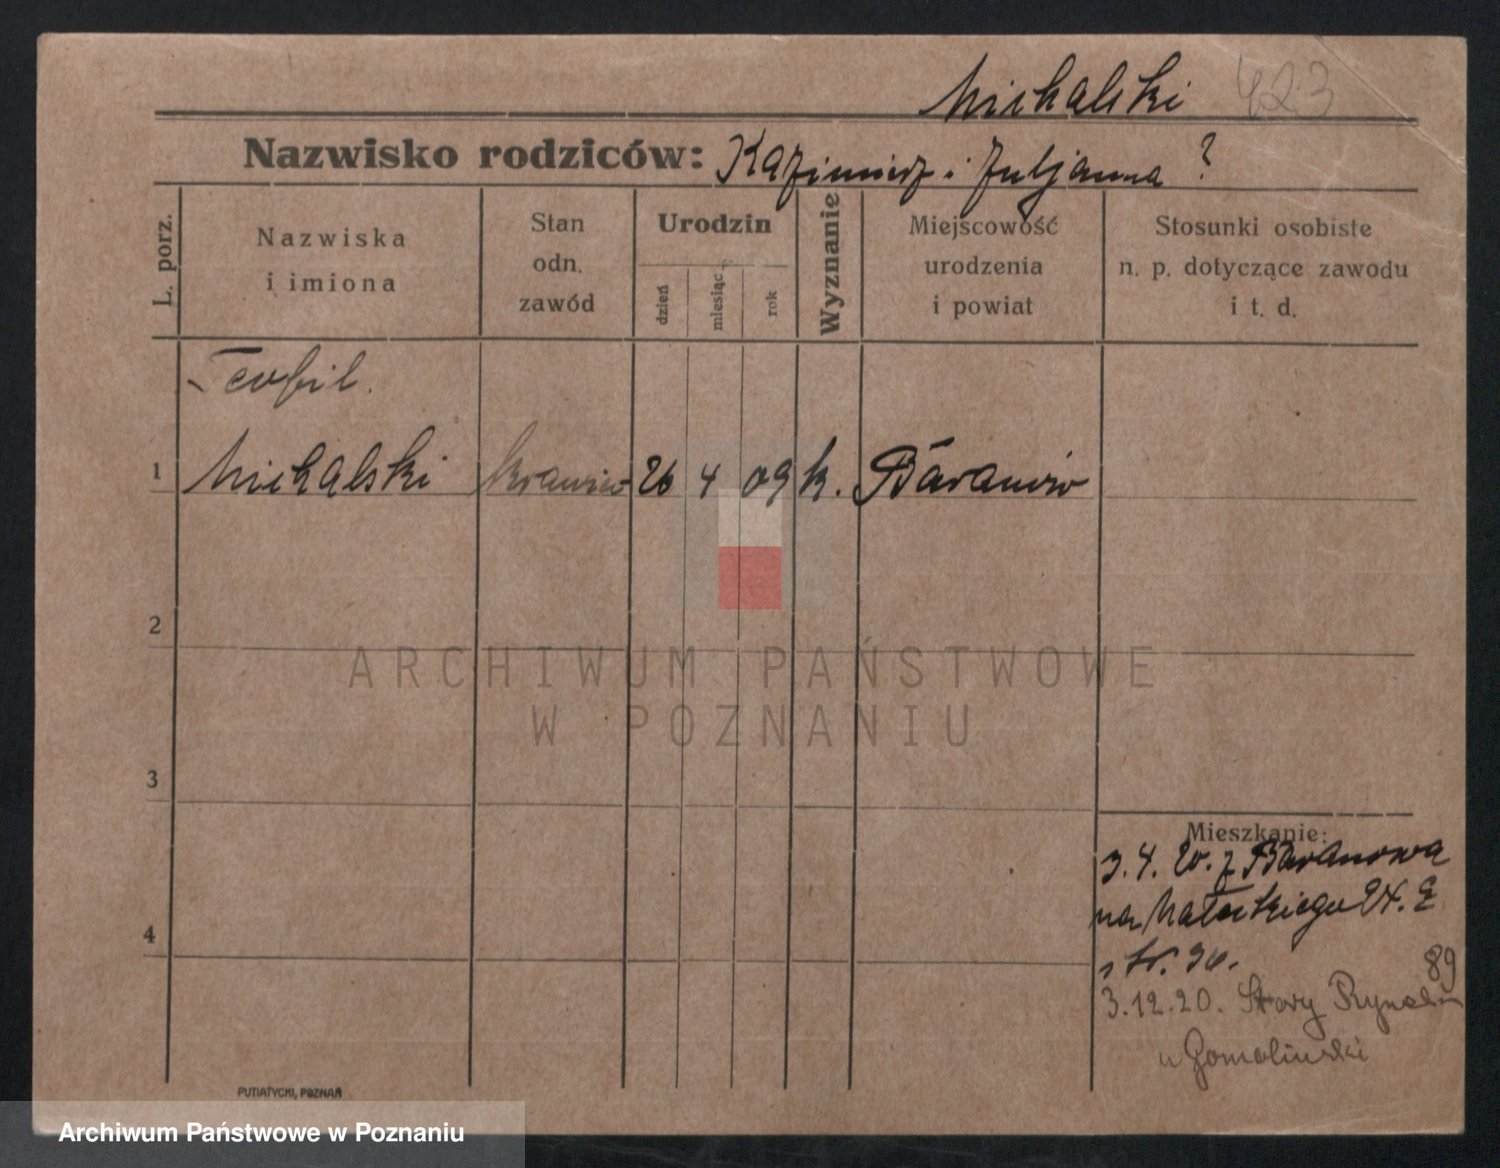 Michalski 423
Nazwisko rodziców: Kazimierz i Juljanna ?
L. porz.
Nazwiska
i imiona
Stan
odn.
zawód
Urodzin
dzień
miesiąc
rok
Wyznanie
Miejscowość
urodzenia
i powiat
Stosunki osobiste
n. p. dotyczące zawodu
i t. d.
Teofil.
1 Michalski krawiec 26 4 09 k. Baranów
2
ARCHIWUM PAŃSTWOWE
W POZNANIU
3
Mieszkanie:
3. 4. 20. z Baranowa
na Małeckiego
4
89
3.12.20. Stary Rynek
u Gomolinski
PUTIATYCKI, POZNAŃ
Archiwum Państwowe w Poznaniu